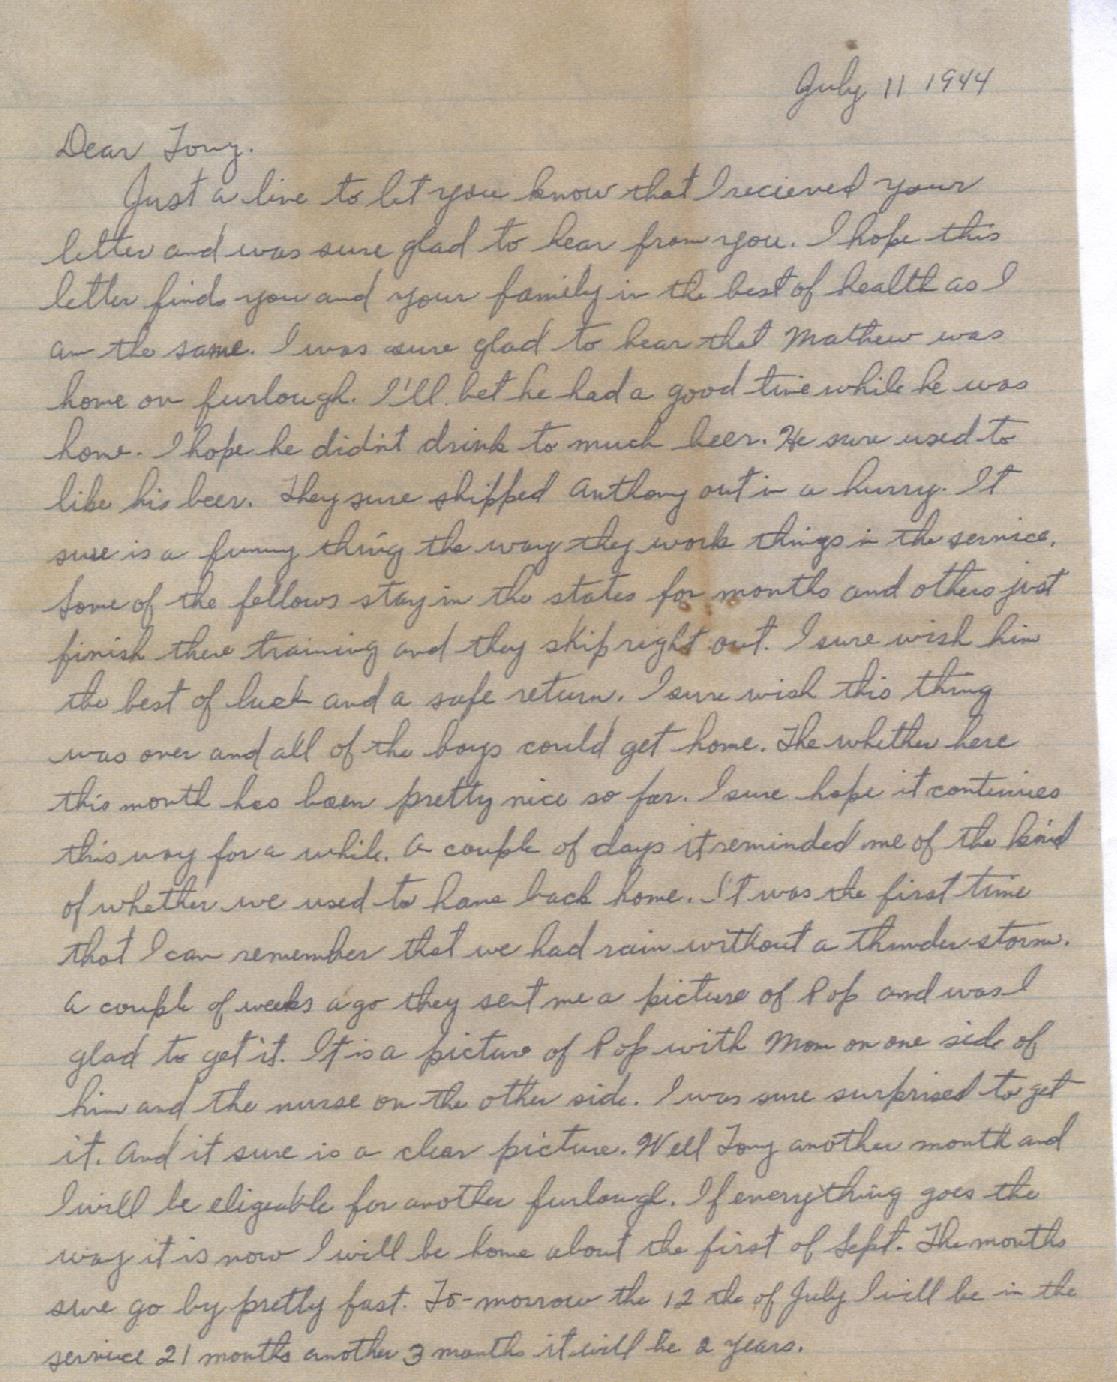 July 11 1944
Dear Tony.
Just a line to let you know that I recieved your
letter and was sure glad to hear from you. I hope this
letter finds you and your family in the best of health as I
am the same. I was sure glad to hear that Mathew was
home on furlough. I'll bet he had a good time while he was
home. I hope he didn't drink to much beer. He sure used to
like his beer. They sure shipped Anthony out in a hurry. It
sure is a funny thing the way they work things in the service.
Some of the fellows stay in the states for months and others just
finish there training and they skip right out. I sure wish him
the best of luck and a safe return. I sure wish this thing
was over and all of the boys could get home. The whether here
this month has been pretty nice so far. I sure hope it continues
this way for a while. A couple of days it reminded me of the kind
of whether we used to have back home. It was the first time
that I can remember that we had rain without a thunder-storm.
A couple of weeks ago they sent me a picture of Pop and was I
glad to get it. It is a picture of Pop with Mom on one side of
him and the nurse on the other side. I was sure surprised to get
it. And it sure is a clear picture. Well Tony another month and
I will be eligeable for another furlough. If everything goes the
way it is now I will be home about the first of Sept. The months
sure go by pretty fast. To-morrow the 12 the of July I will be in the
service 21 months another 3 months it will be 2 years.